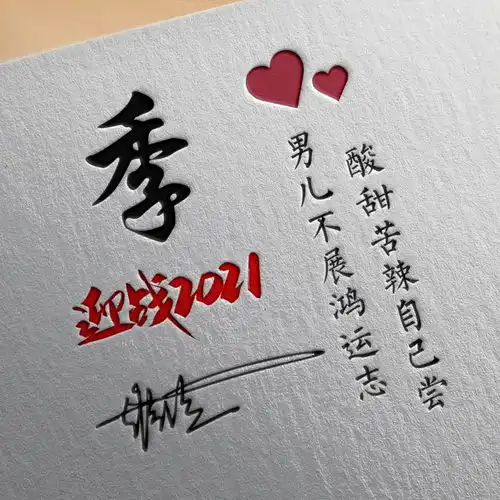 季
迎战2021
男儿不展鸿运志
酸甜苦辣自己尝